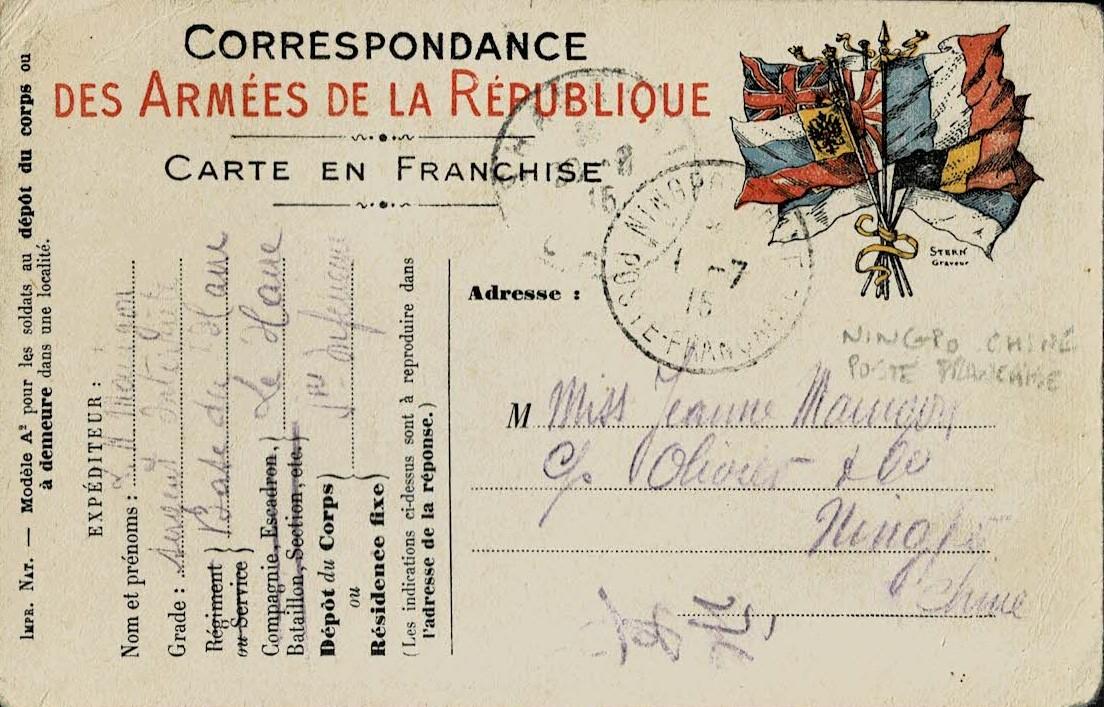 CORRESPONDANCE
DES ARMÉES DE LA RÉPUBLIQUE
CARTE EN FRANCHISE
STERN
Graveur
NINGPO
1 -7
15
POSTE FRANÇAISE
NINGPO CHINE
POSTE FRANCHISE
Adresse :
M Miss Jeanne Maingon
c/o Olivier & Co
Ningpo
Chine
IMPR. NAT. — Modèle A² pour les soldats au dépôt du corps ou
à demeure dans une localité.
EXPÉDITEUR :
Nom et prénoms :
Grade : Sergent
Régiment
ou Service } Base du Havre
Compagnie, Escadron,
Bataillon, Section, etc. } Le Havre
Dépôt du Corps
ou
Résidence fixe }
(Les indications ci-dessus sont à reproduire dans
l'adresse de la réponse.)